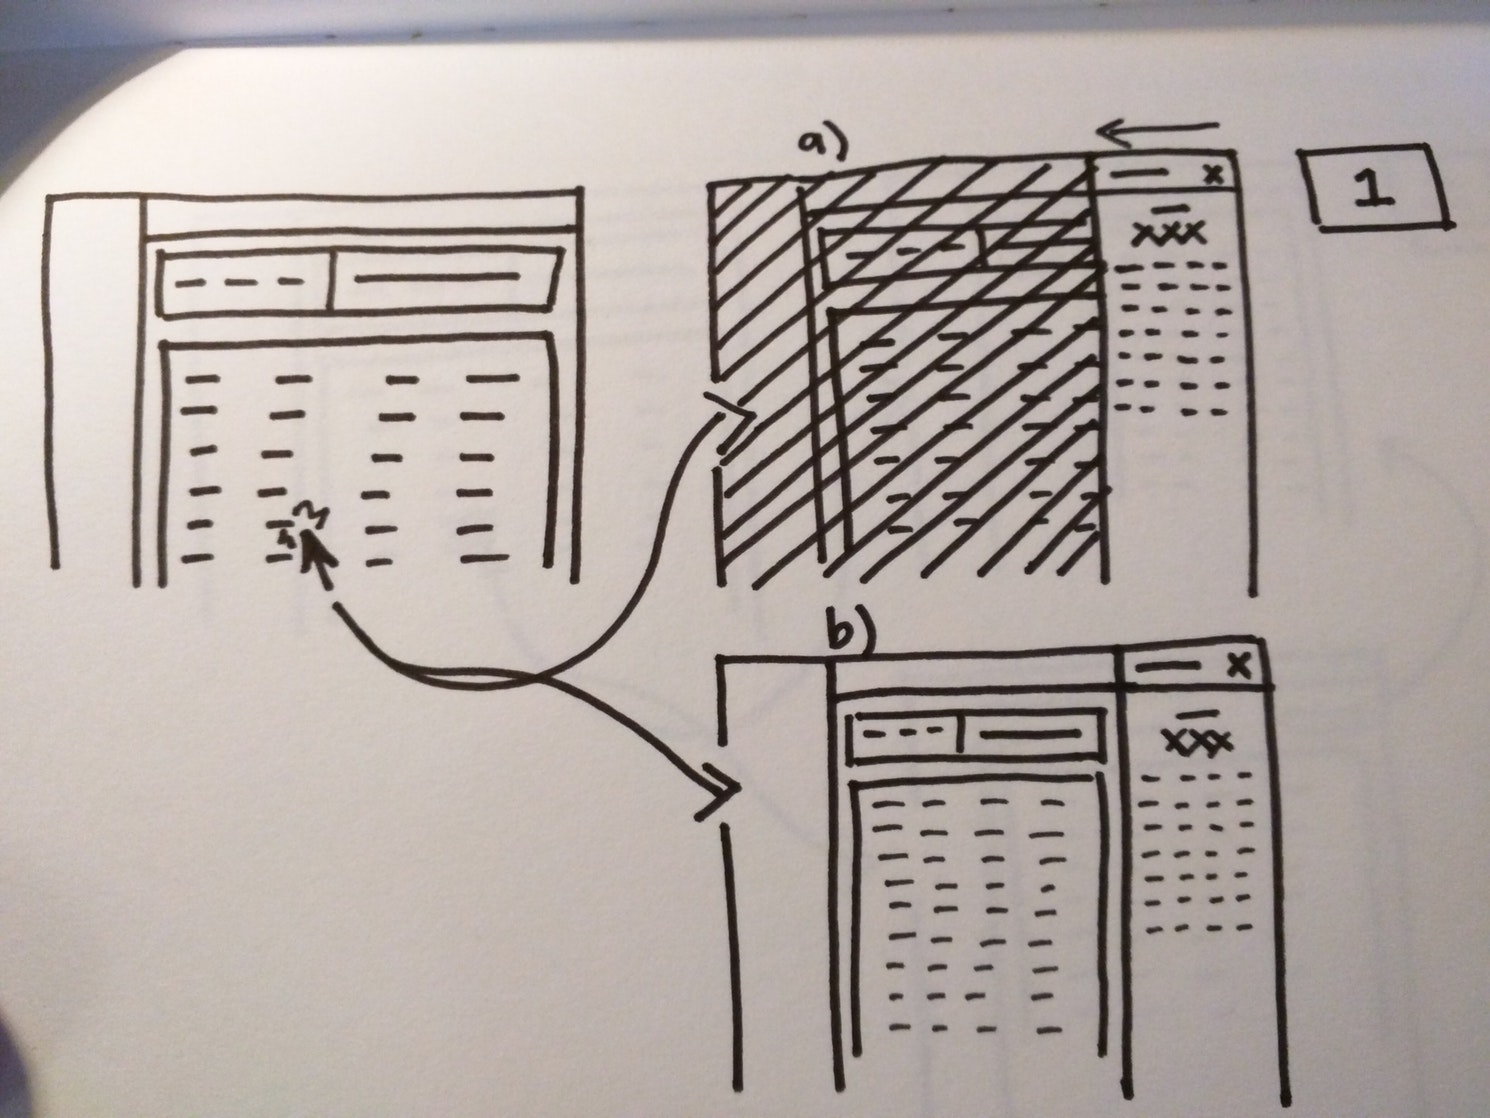 a)
x
1
xxx
b)
x
xxx